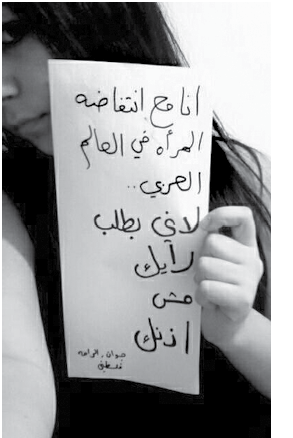 انا مع انتفاضه
المرأه في العالم
العربي..
لاني بطلب
رايك
مش
اذنك
فلسطين